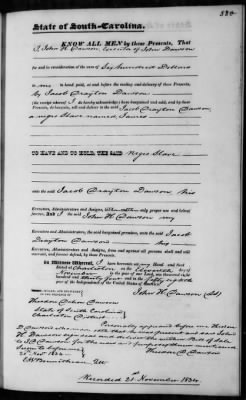 State of South-Carolina.
KNOW ALL MEN by these Presents, That
I John H. Dawson, Executor of John Dawson
for and in consideration of the sum of Six hundred Dollars
to me in hand paid, at and before the sealing and delivery of these Presents,
by Jacob Drayton Dawson
(the receipt whereof I do hereby acknowledge) have bargained and sold, and by these
Presents, do bargain, sell and deliver to the said Jacob Drayton Dawson
a negro Slave named James
TO HAVE AND TO HOLD, THE SAID Negro Slave
unto the said Jacob Drayton Dawson, his
Executors, Administrators and Assigns, to his and their only proper use and behoof
forever. And I the said John H. Dawson my
Executors, Administrators, the said bargained premises, unto the said Jacob
Drayton Dawson his
Executors, Administrators and Assigns, from and against all persons shall and will
warrant, and forever defend, by these Presents.
In Witness Whereof, I have hereunto set my Hand and Seal
Dated at Charleston on the Eleventh day of
November in the year of our Lord, one thousand eight
hundred and thirty four and in the fifty ninth year
of the Independence of the United States of America.
John H. Dawson
Theodore Dawson
State of South Carolina
Charleston District
Personally appeared before me
Dawson who made oath that he was present and saw John
H. Dawson sign seal and deliver the within Bill of Sale
to J D Dawson for the
Sworn to before
21st Novr. 1834
Recorded 21st November 1834.